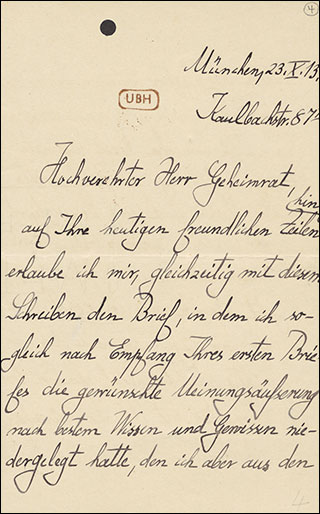 4
München, 23. X. 13.
UBH
Kaulbachstr. 87
Hochverehrter Herr Geheimrat,
hin
auf Ihre heutigen freundlichen Zeilen
erlaube ich mir, gleichzeitig mit diesem
Schreiben den Brief, in dem ich so-
gleich nach Empfang Ihres ersten Brie-
fes die gewünschte Meinungsäußerung
nach bestem Wissen und Gewissen nie-
dergelegt hatte, den ich aber aus den
4